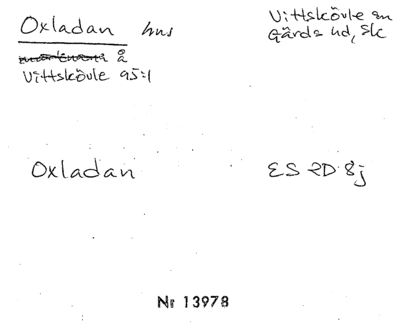 Oxladan hus
Vittskövle sn
Gärds hd, Sk
å
Vittskövle 95:1
Oxladan
ES 2D 8j
Nr 13978